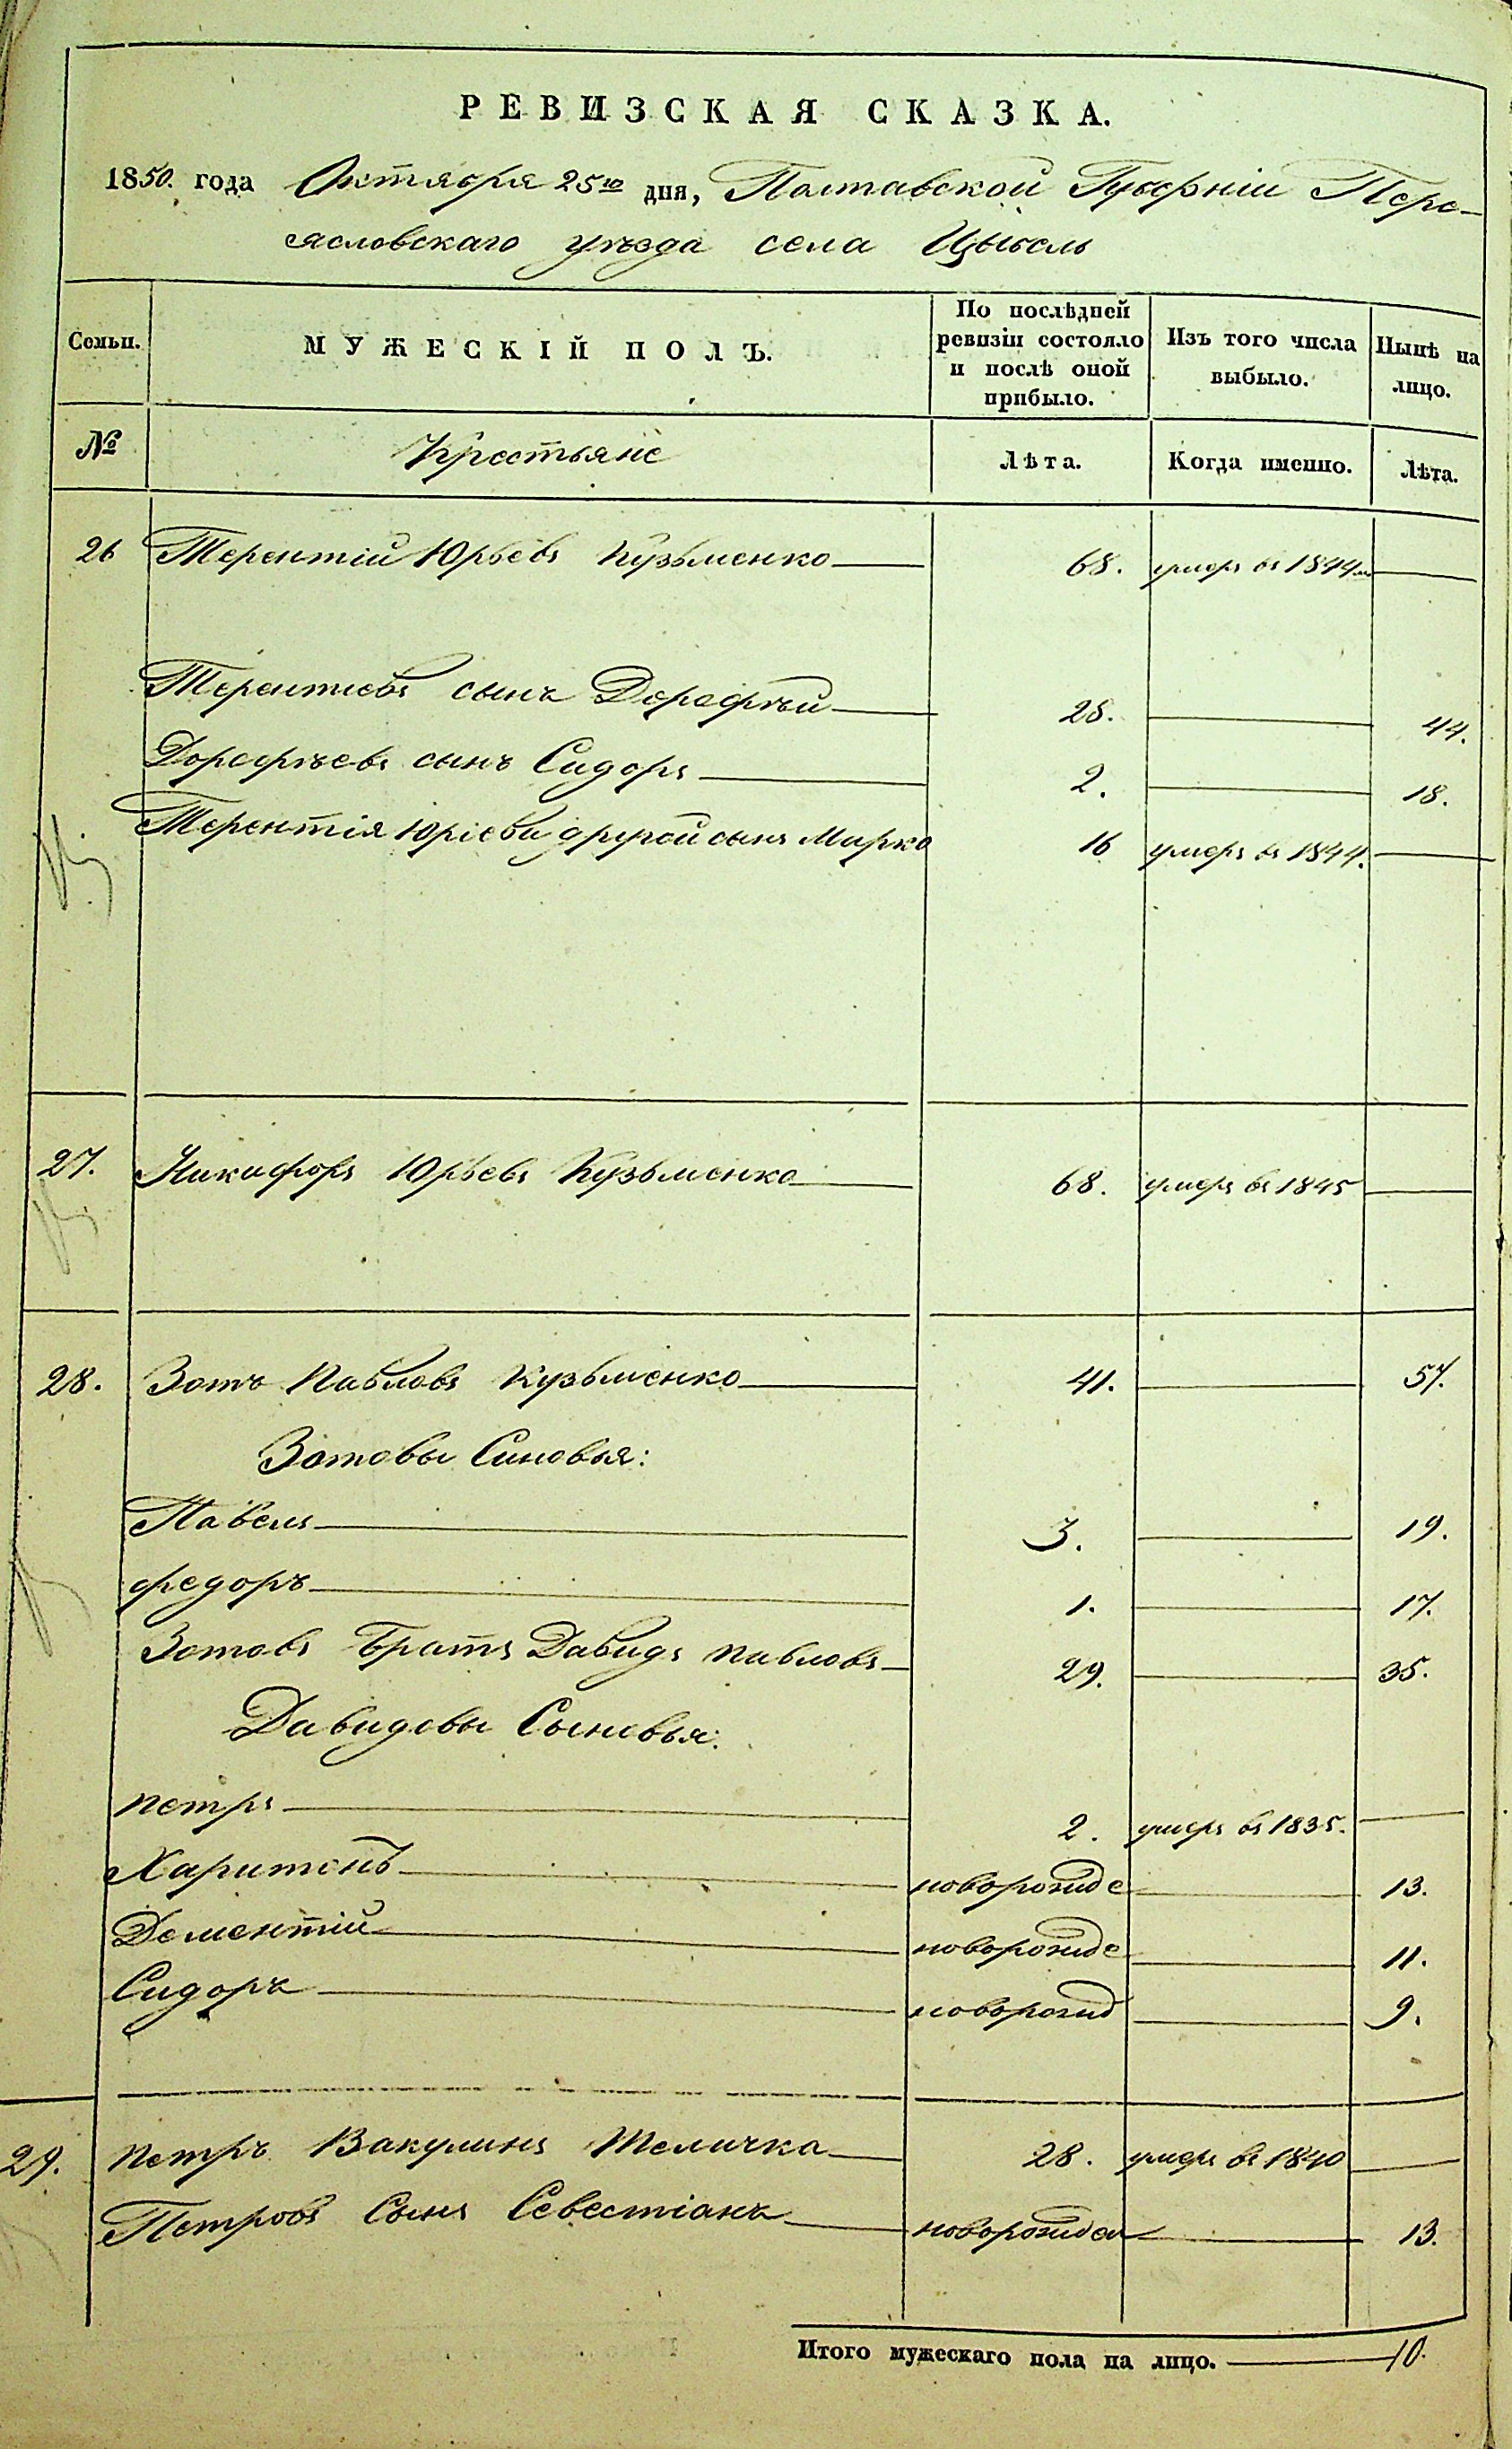 РЕВИЗСКАЯ СКАЗКА.
1850. года Октября 25го дня, Полтавской Губерніи Пере-
яасловскаго уѣзда села Цыбель
Семьи. МУЖЕСКІЙ ПОЛЪ. По послѣдней ревизіи состояло и послѣ оной прибыло. Изъ того числа выбыло. Нынѣ на лицо.
№ Крестьяне Лѣта. Когда именно. Лѣта.
26 Терентій Юрьевъ Кузьменко 68. умеръ въ 1844
Терентиевъ сынъ Дорофѣй 28. 44.
Дорофѣевъ сынъ Сидоръ 2. 18.
Терентія Юріева другой сынъ Марко 16 умеръ въ 1844.
27. Никифоръ Юрьевъ Кузьменко 68. умеръ въ 1845
28. Зотъ Павловъ Кузьменко 41. 57.
Зотовы Синовья:
Павелъ 3. 19.
федоръ 1. 17.
Зотовъ Братъ Давидъ Павловъ 29. 35.
Давидовы Сыновья:
Петръ 2. умеръ въ 1835.
Харитонъ новорожде 13.
Дементій новорожде 11.
Сидоръ новорожд 9.
29. Петръ Вакулинъ Теличка 28. умеръ въ 1840
Петровъ Сынъ Севестіанъ новорожден 13.
Итого мужескаго пола на лицо. 10.